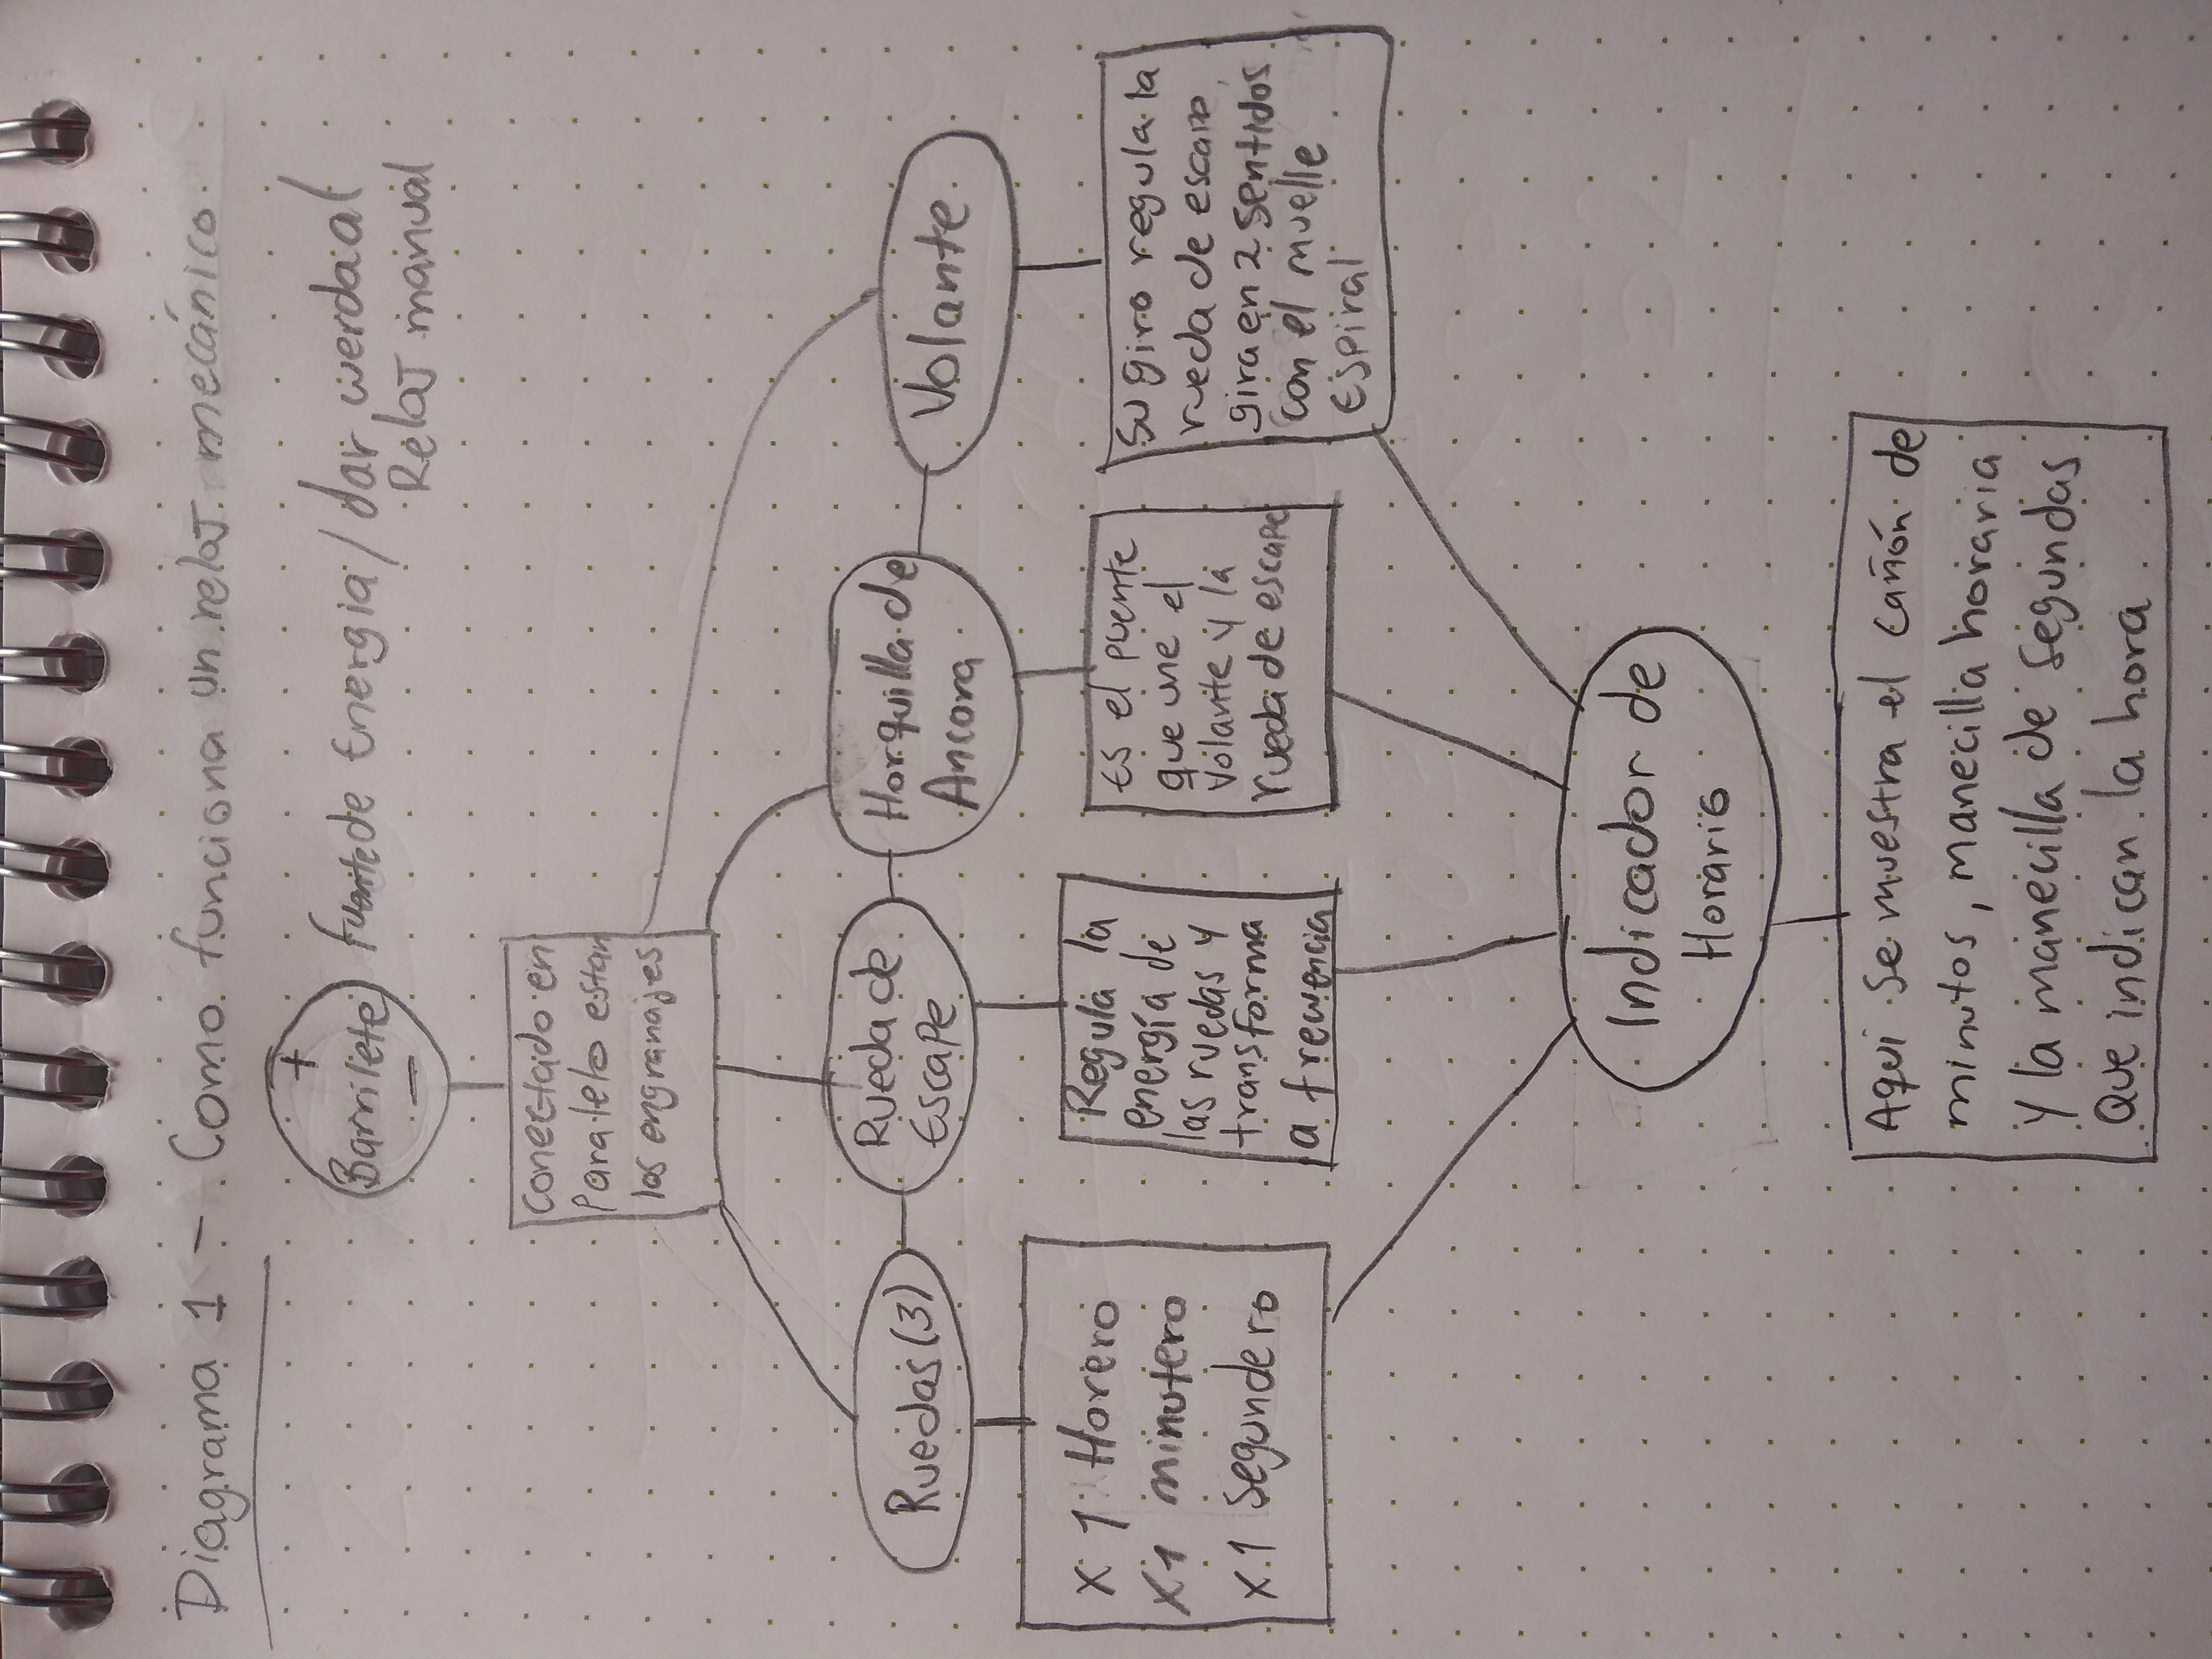 Diagrama 1 - Como funciona un reloj mecánico
+
Barrilete
-
fuente de Energia / dar cuerda al
Reloj manual
Conectado en
Paralelo estan
los engranajes
Ruedas (3)
Rueda de
Escape
Horquilla de
Ancora
Volante
x 1 Horero
x1 minutero
x.1 Segundero
Regula la
energía de
las ruedas y
transforma
a frecuencia
Es el puente
que une el
Volante y la
rueda de escape
Su giro regula la
rueda de escape,
gira en 2 sentidos
con el muelle
Espiral
Indicador de
Horario
Aqui se muestra el cañón de
minutos, manecilla horaria
y la manecilla de segundas
Que indican la hora